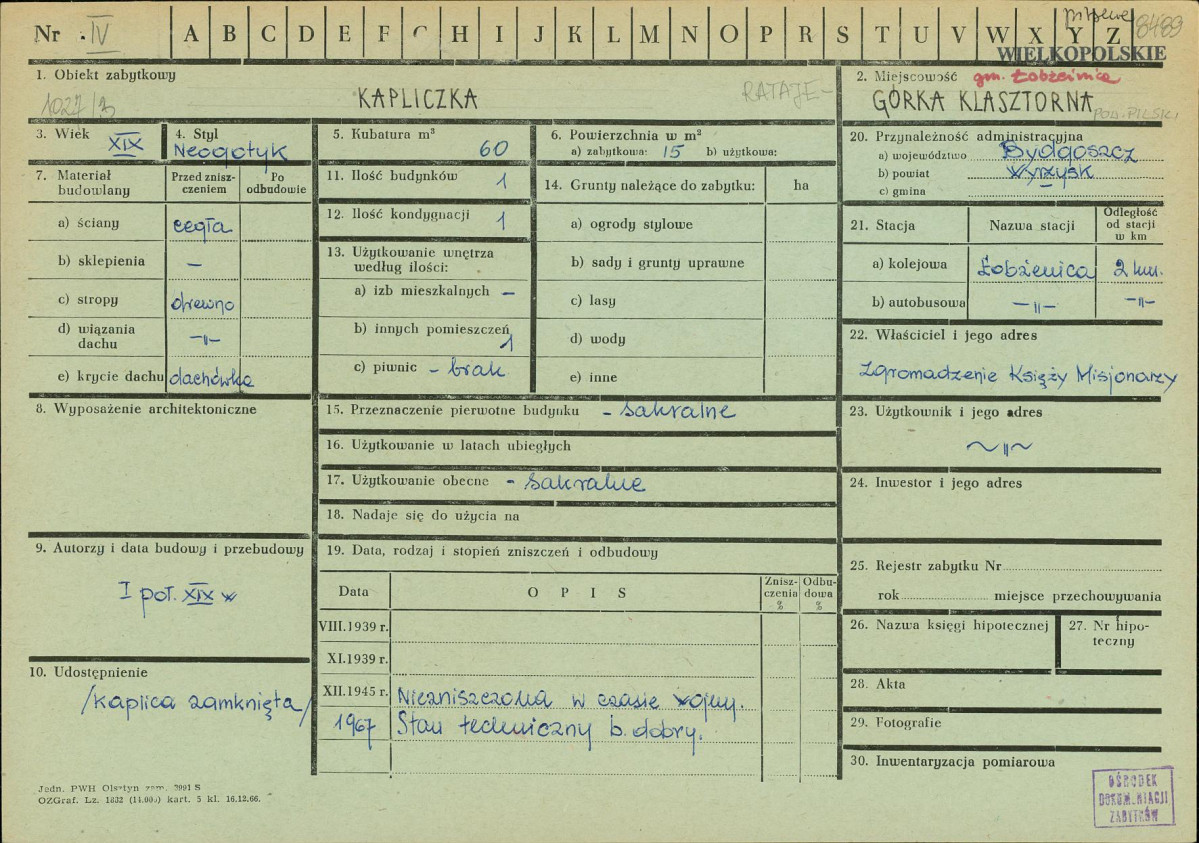 Nr IV A B C D E F G H I J K L M N O P R S T U V W X Y Z 8489
pilskie
WIELKOPOLSKIE
1. Obiekt zabytkowy
1027/3
KAPLICZKA
RATAJE
2. Miejscowość gm. Łobżenica
GÓRKA KLASZTORNA
pow. PILSKI
3. Wiek XIX
4. Styl
Neogotyk
5. Kubatura m³
60
6. Powierzchnia w m²
a) zabytkowa: 15 b) użytkowa:
7. Materiał budowlany
Przed znisz-
czeniem
Po
odbudowie
a) ściany cegła
b) sklepienia –
c) stropy drewno
d) wiązania
dachu –„–
e) krycie dachu dachówka
11. Ilość budynków 1
12. Ilość kondygnacji 1
13. Użytkowanie wnętrza
według ilości:
a) izb mieszkalnych –
b) innych pomieszczeń
1
c) piwnic – brak
14. Grunty należące do zabytku: ha
a) ogrody stylowe
b) sady i grunty uprawne
c) lasy
d) wody
e) inne
20. Przynależność administracyjna
a) województwo Bydgoszcz
b) powiat Wyrzysk
c) gmina
21. Stacja Nazwa stacji
Odległość
od stacji
w km
a) kolejowa Łobżenica 2 km.
b) autobusowa –„– –„–
22. Właściciel i jego adres
Zgromadzenie Księży Misjonarzy
8. Wyposażenie architektoniczne
15. Przeznaczenie pierwotne budynku – sakralne
16. Użytkowanie w latach ubiegłych
17. Użytkowanie obecne – sakralne
18. Nadaje się do użycia na
23. Użytkownik i jego adres
~„~
24. Inwestor i jego adres
9. Autorzy i data budowy i przebudowy
I poł. XIX w
10. Udostępnienie
/kaplica zamknięta/
19. Data, rodzaj i stopień zniszczeń i odbudowy
Data O P I S
Znisz-
czenia
%
Odbu-
dowa
%
VIII.1939 r.
XI.1939 r.
XII.1945 r. Niezniszczona w czasie wojny.
1967 Stan techniczny b. dobry.
25. Rejestr zabytku Nr
rok miejsce przechowywania
26. Nazwa księgi hipotecznej
27. Nr hipo-
teczny
28. Akta
29. Fotografie
30. Inwentaryzacja pomiarowa
Jedn. PWH Olsztyn zam. 3991 S
OZGraf. Lz. 1832 (14.000) kart. 5 kl. 16.12.66.
OŚRODEK
DOKUMENTACJI
ZABYTKÓW